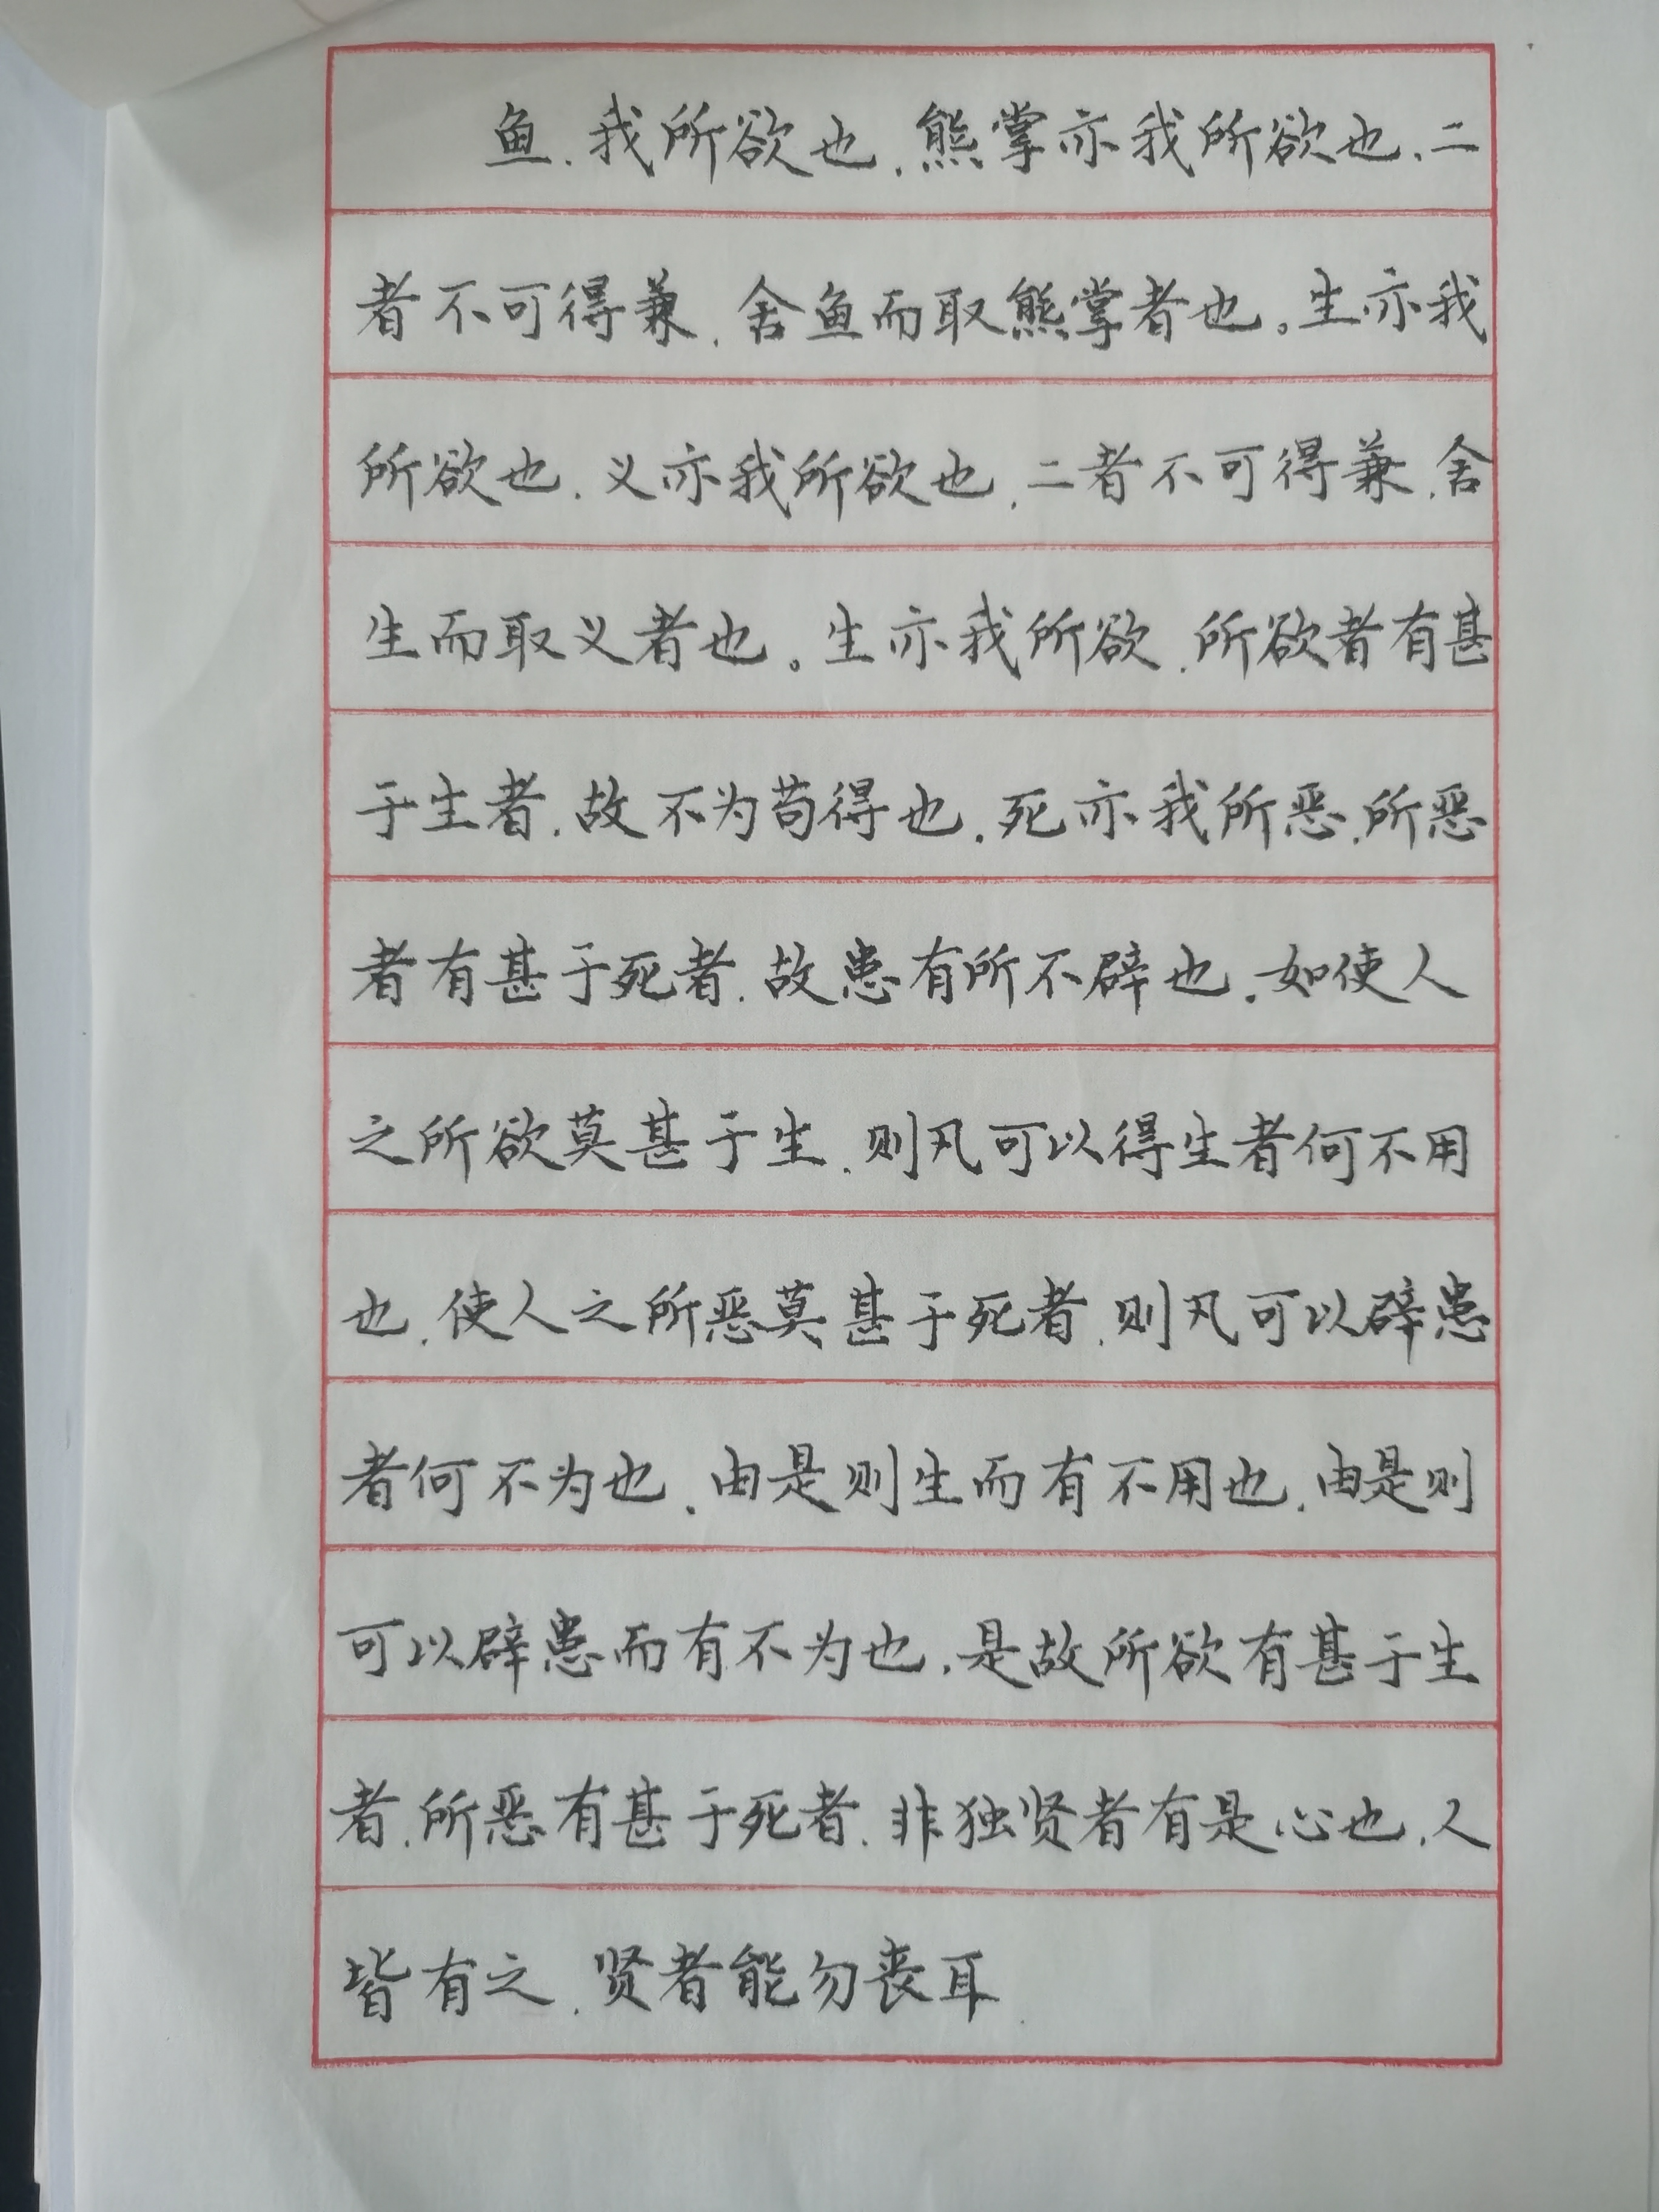 鱼，我所欲也，熊掌亦我所欲也，二
者不可得兼，舍鱼而取熊掌者也。生亦我
所欲也，义亦我所欲也，二者不可得兼，舍
生而取义者也。生亦我所欲，所欲者有甚
于生者，故不为苟得也，死亦我所恶，所恶
者有甚于死者，故患有所不辟也，如使人
之所欲莫甚于生，则凡可以得生者何不用
也，使人之所恶莫甚于死者，则凡可以辟患
者何不为也，由是则生而有不用也，由是则
可以辟患而有不为也，是故所欲有甚于生
者，所恶有甚于死者，非独贤者有是心也，人
皆有之，贤者能勿丧耳